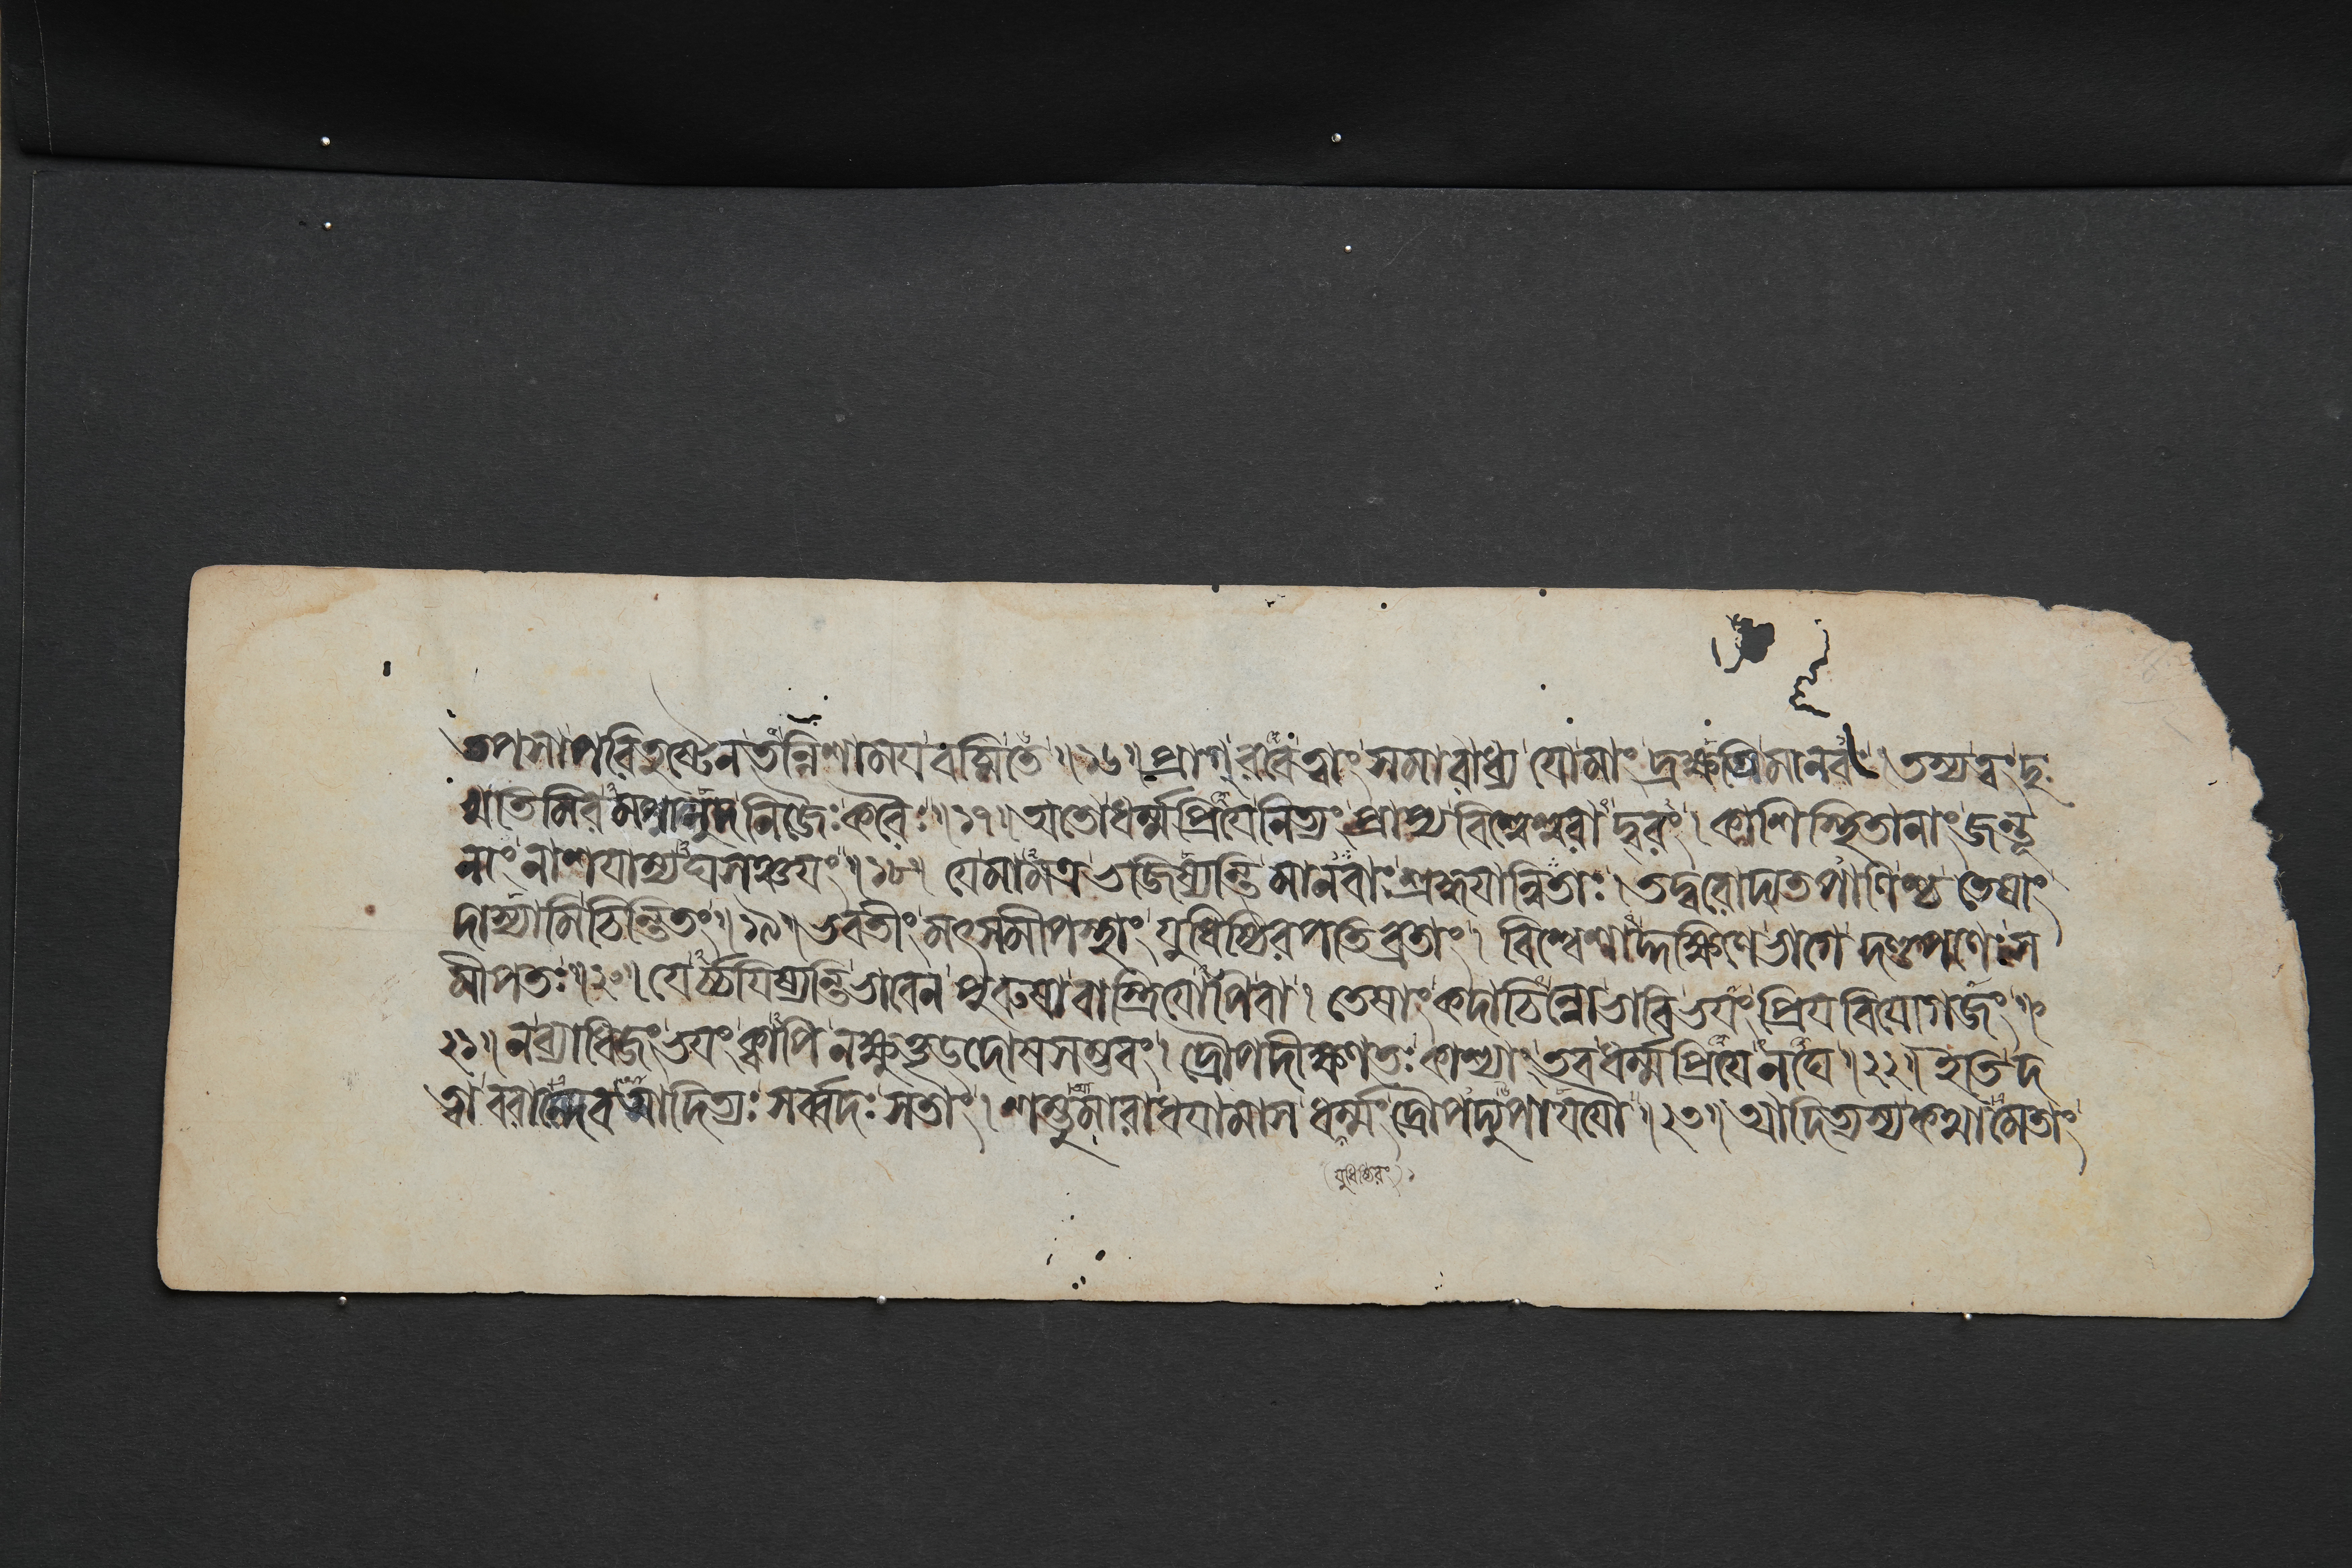 তপসাপৰিতুষ্টেনতন্নিশাময়বচ্মিতে॥১৬॥প্রাগ্ৰবেত্বাং সমাৰাধ্য যোমাং দ্রক্ষ্যতিমানবঃ।তস্যত্বংদুঃ
খতিমিৰমপানুদনিজৈঃকৰৈঃ॥১৭॥অতোধর্ম্মপ্রিয়েনিত্যং প্রাপ্যবিশ্বেশ্বৰাদ্বৰং।কাশিস্থিতানাং জন্তূ
নাং নাশয়াম্যঘসঞ্চয়ং॥১৮॥ যেমামত্রভজিষ্যন্তি মানবাঃশ্রদ্ধয়ান্বিতাঃ।তদ্বৰোদ্যতপাণিঞ্চ তেষাং
দাস্যামিচিন্তিতং॥১৯॥ভবতীং মৎসমীপস্থাং যুধিষ্ঠিৰপতিব্রতাং। বিশ্বেশাদ্দক্ষিণেভাগে দণ্ডপাণেঃস
মীপতঃ॥২০॥ যের্চ্চয়িষ্যন্তিভাবেন পুৰুষাবাস্ত্রিয়োপিবা। তেষাংকদাচিন্নোভাবিভয়ং প্রিয়বিয়োগজং॥
২১॥নব্যাধিজংভয়ং ক্বাপি নক্ষুত্তৃড্দোষসম্ভবং। দ্রৌপদীক্ষণতঃকাশ্যাং তবধর্ম্মপ্রিয়েনঘে॥২২॥ ইতিদ
ত্বা বৰান্দেবআদিত্যঃ সর্ব্বদঃ সতাং।শম্ভুমাৰাধয়ামাস ধর্ম্মং দ্রৌপদ্যুপায়যৌ॥২৩॥আদিত্যস্যকথামেতাং
(যুধিষ্ঠিৰং)